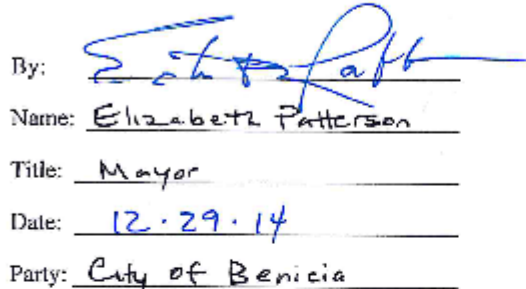 By:
Name: Elizabeth Patterson
Title: Mayor
Date: 12.29.14
Party: City of Benicia